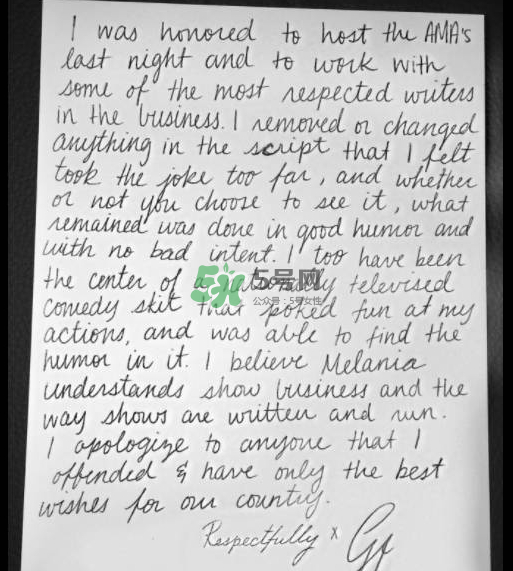 I was honored to host the AMA's
last night and to work with
some of the most respected writers
in the business. I removed or changed
anything in the script that I felt
took the joke too far, and whether
or not you choose to see it, what
remained was done in good humor and
with no bad intent. I too have been
the center of a televised
comedy skit that poked fun at my
actions, and was able to find the
humor in it. I believe Melania
understands show business and the
way shows are written and run.
I apologize to anyone that I
offended & have only the best
wishes for our country.
Respectfully x
5号网
公众号:5号女性